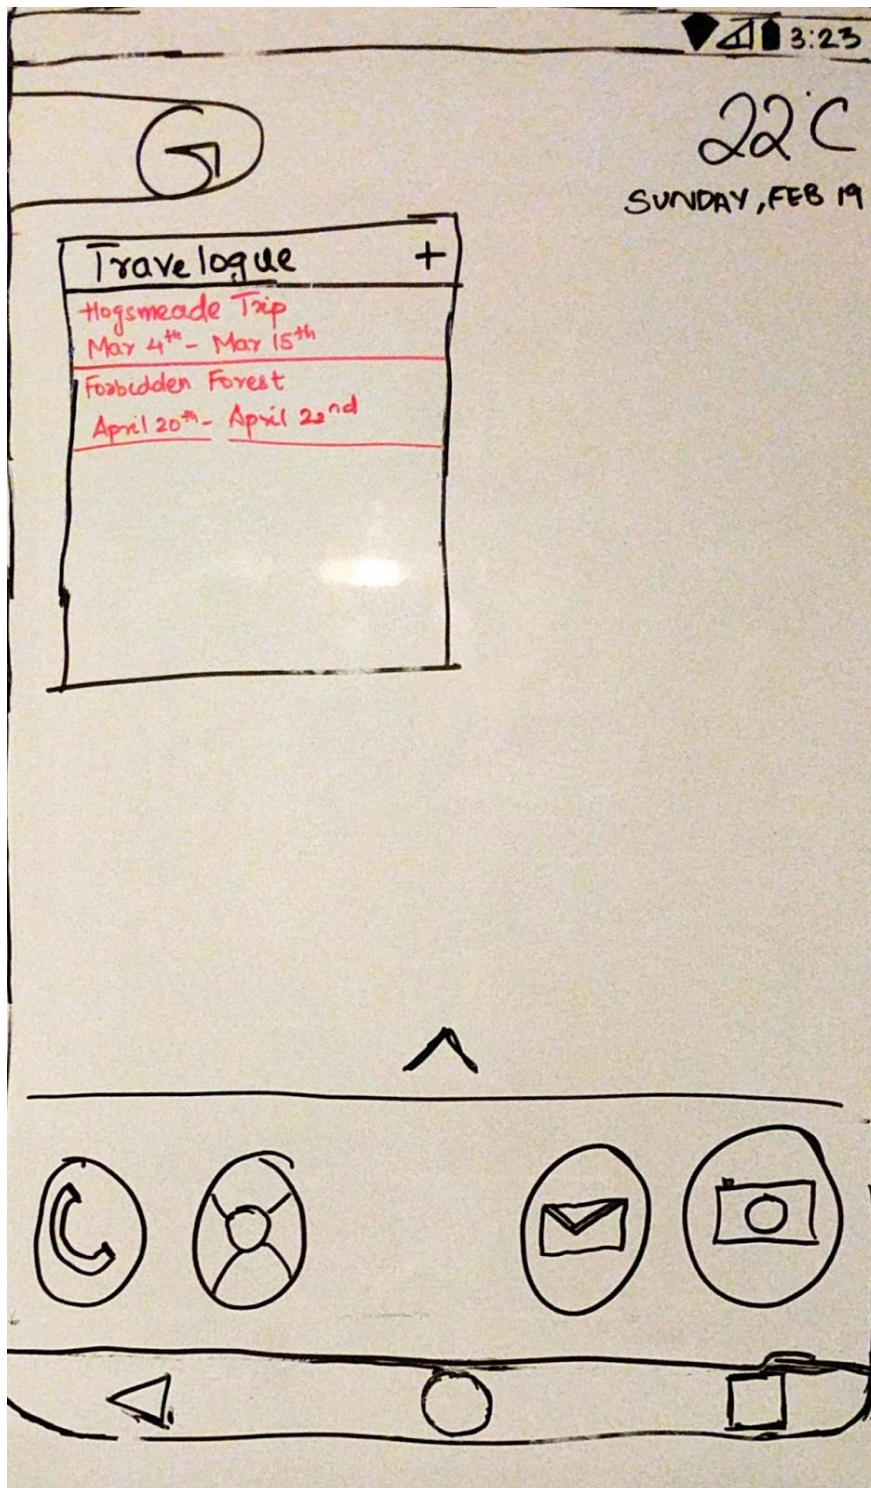 3:23
G
22°C
SUNDAY, FEB 19
Travelogue +
Hogsmeade Trip
Mar 4th - Mar 15th
Forbidden Forest
April 20th - April 22nd